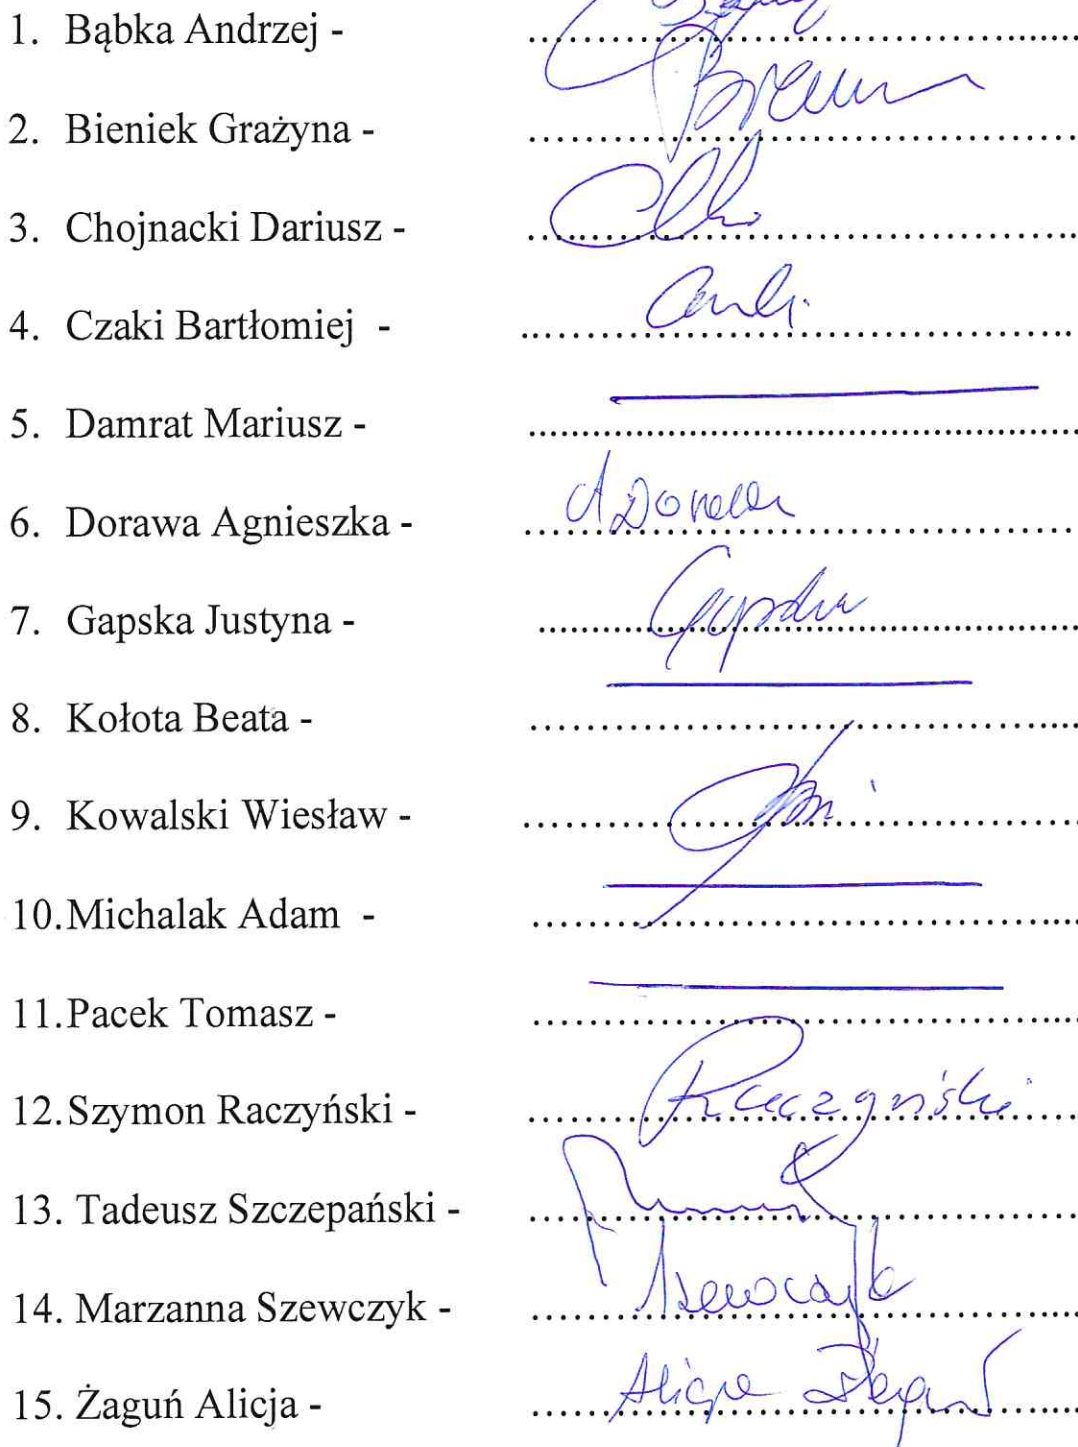 1. Bąbka Andrzej - ..........................................
2. Bieniek Grażyna - ..........................................
3. Chojnacki Dariusz - ..........................................
4. Czaki Bartłomiej - ..........................................
5. Damrat Mariusz - ..........................................
6. Dorawa Agnieszka - ..........................................
7. Gapska Justyna - ..........................................
8. Kołota Beata - ..........................................
9. Kowalski Wiesław - ..........................................
10.Michalak Adam - ..........................................
11.Pacek Tomasz - ..........................................
12.Szymon Raczyński - Raczyński
13. Tadeusz Szczepański - ..........................................
14. Marzanna Szewczyk - ..........................................
15. Żaguń Alicja - Alicja Żaguń